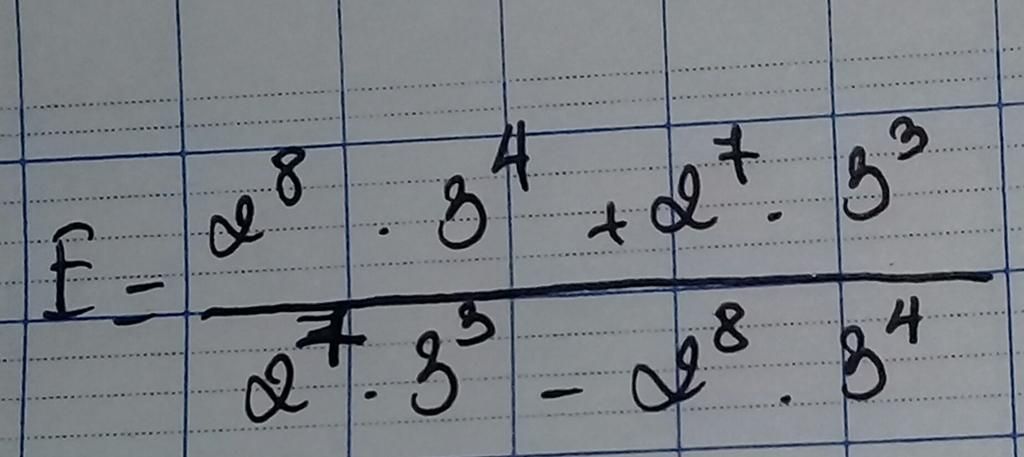 F = \frac{2^8 \cdot 3^4 + 2^7 \cdot 3^3}{2^7 \cdot 3^3 - 2^8 \cdot 3^4}